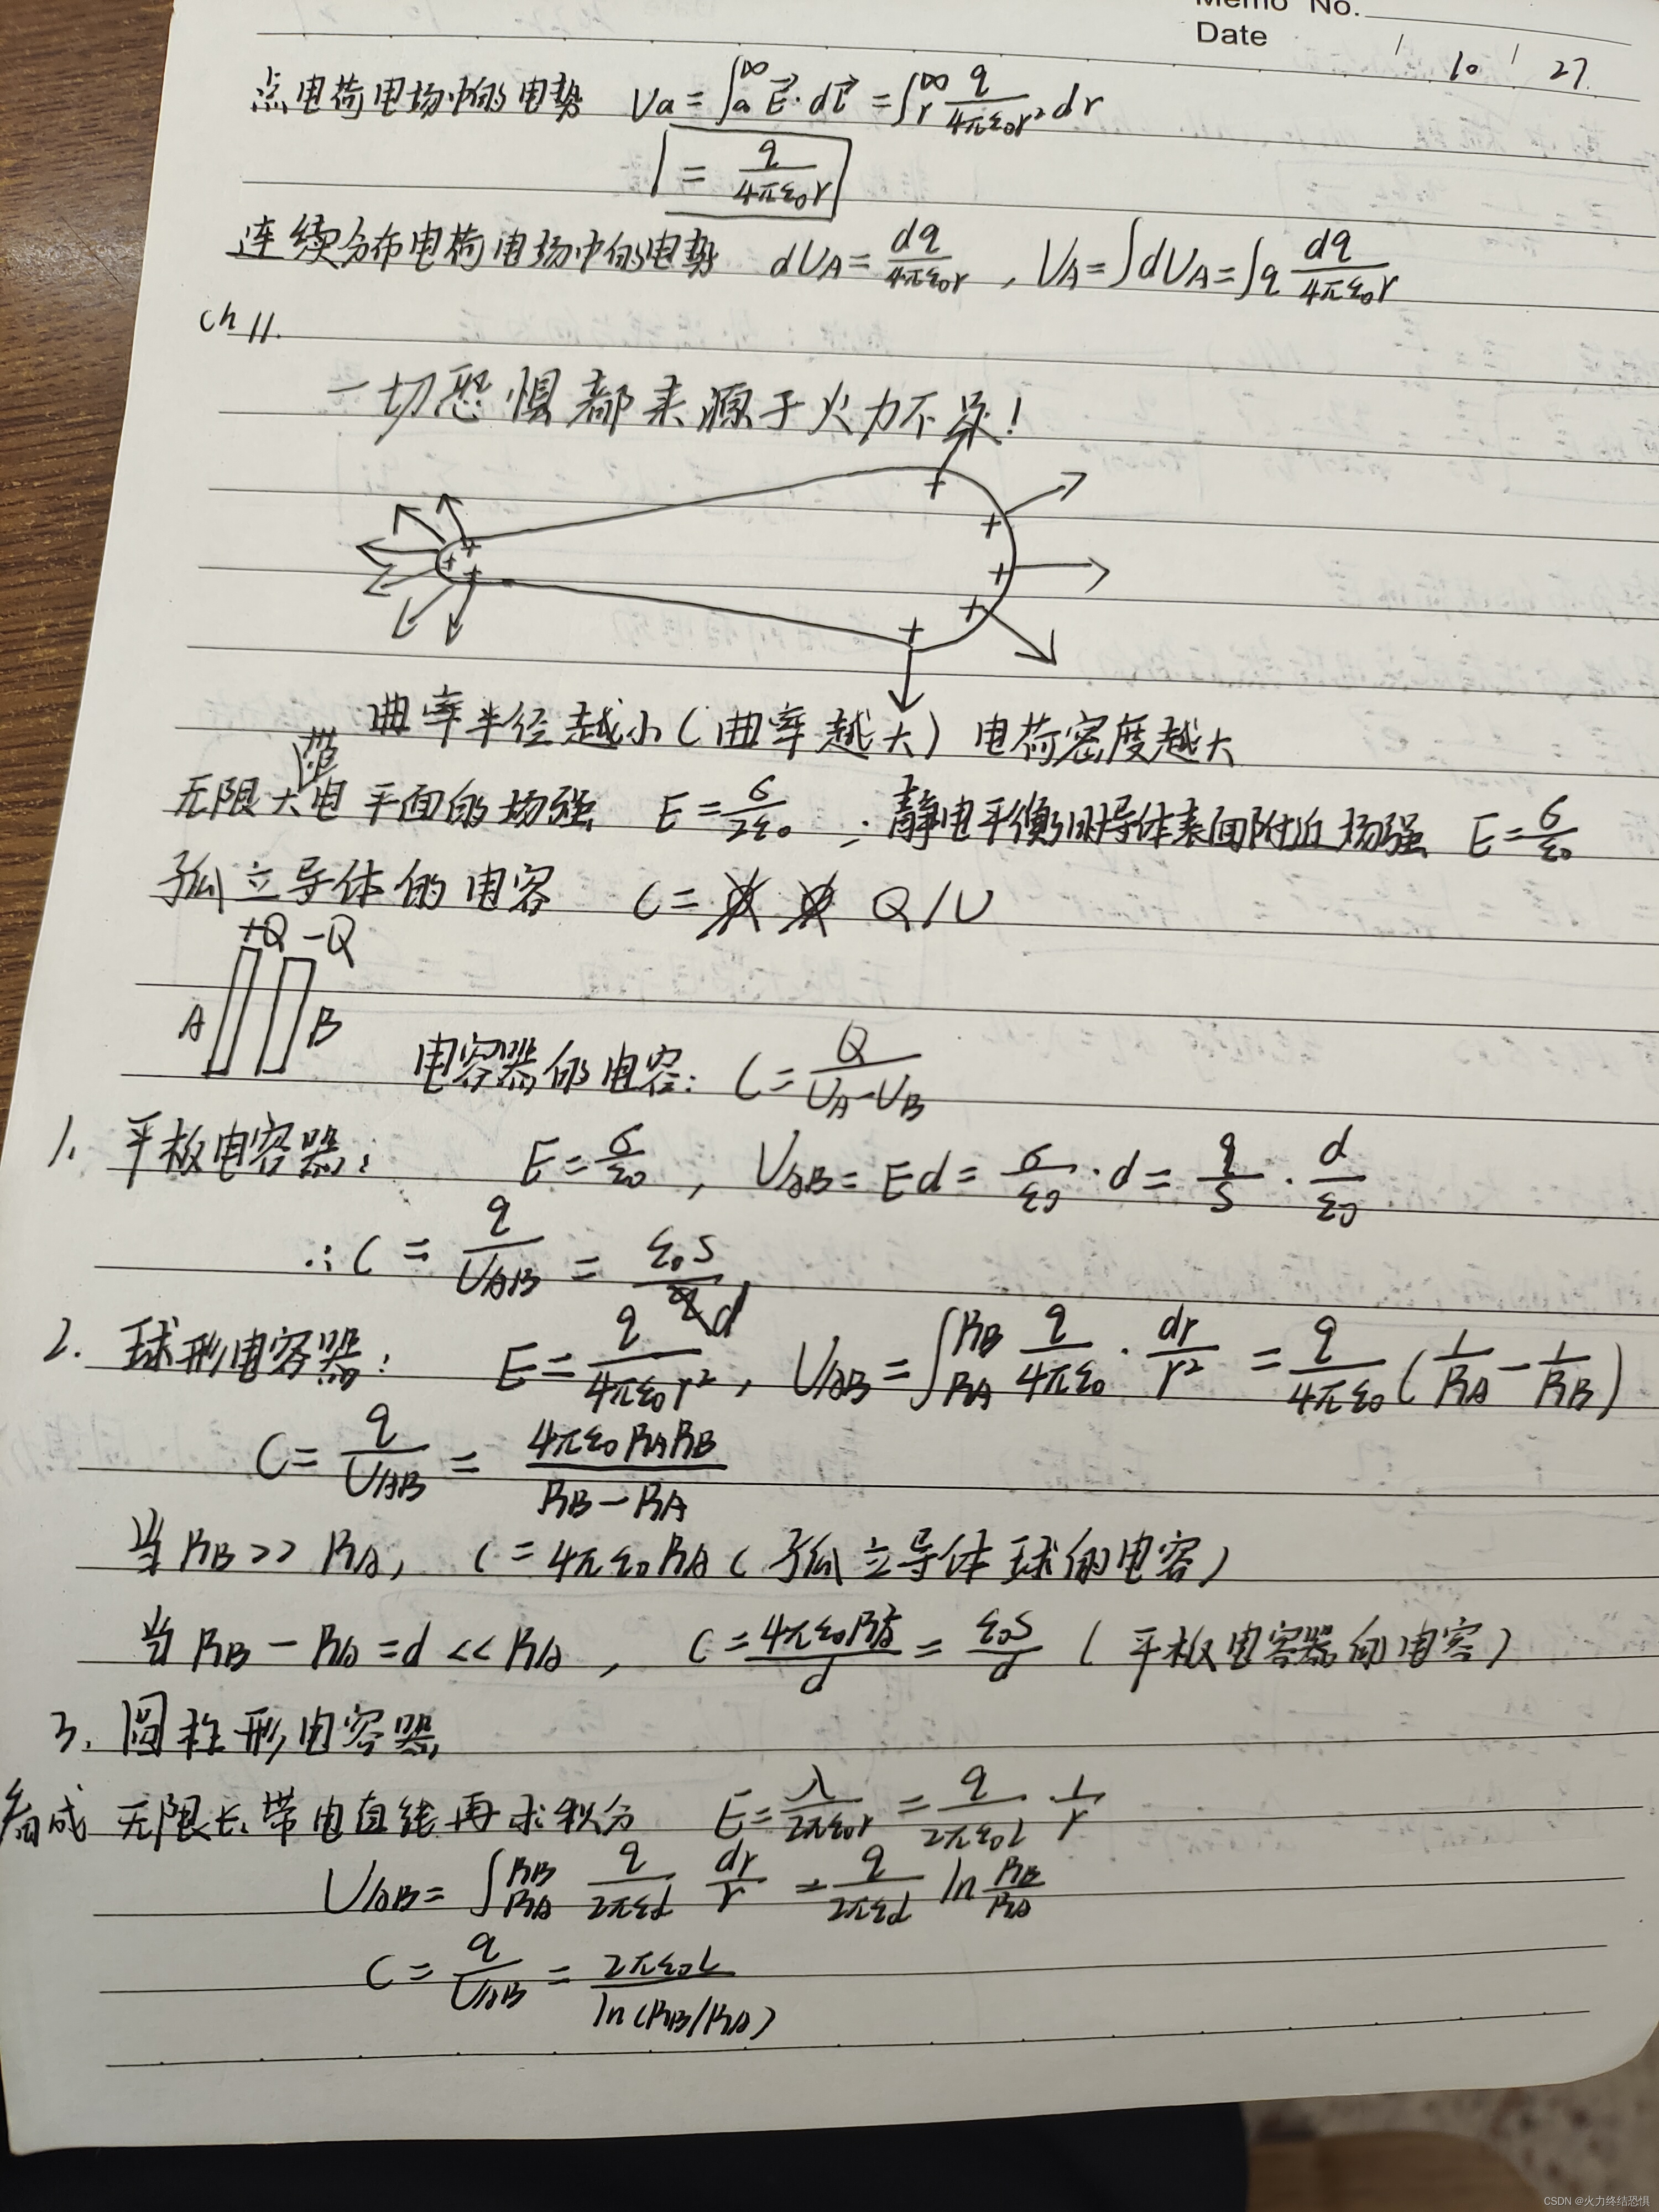 Memo No.
Date / 10 / 27
点电荷电场中的电势 Va = ∫a^∞ E⃗·dl⃗ = ∫r^∞ q/(4πε₀r²) dr
= q/(4πε₀r)
连续分布电荷电场中的电势 dUA = dq/(4πε₀r) , UA = ∫dUA = ∫q dq/(4πε₀r)
ch 11.
一切恐惧都来源于火力不足!
+ + + + + + + +
曲率半径越小(曲率越大) 电荷密度越大
无限大带电平面的场强 E = σ/(2ε₀) ; 静电平衡时导体表面附近场强 E = σ/ε₀
孤立导体的电容 C = Q/U
+Q -Q
A B
电容器的电容: C = Q/(UA-UB)
1. 平板电容器: E = σ/ε₀ , UAB = Ed = σ/ε₀ · d = q/S · d/ε₀
∴ C = q/UAB = ε₀S/d
2. 球形电容器: E = q/(4πε₀r²) , UAB = ∫RA^RB q/(4πε₀) · dr/r² = q/(4πε₀) (1/RA - 1/RB)
C = q/UAB = 4πε₀RARB/(RB-RA)
当 RB >> RA, C = 4πε₀RA (孤立导体球的电容)
当 RB - RA = d << RA , C = 4πε₀RA²/d = ε₀S/d (平板电容器的电容)
3. 圆柱形电容器
看成 无限长带电直线再求积分 E = λ/(2πε₀r) = q/(2πε₀L) 1/r
UAB = ∫RA^RB q/(2πε₀L) dr/r = q/(2πε₀L) ln RB/RA
C = q/UAB = 2πε₀L/ln(RB/RA)
CSDN @火力终结恐惧